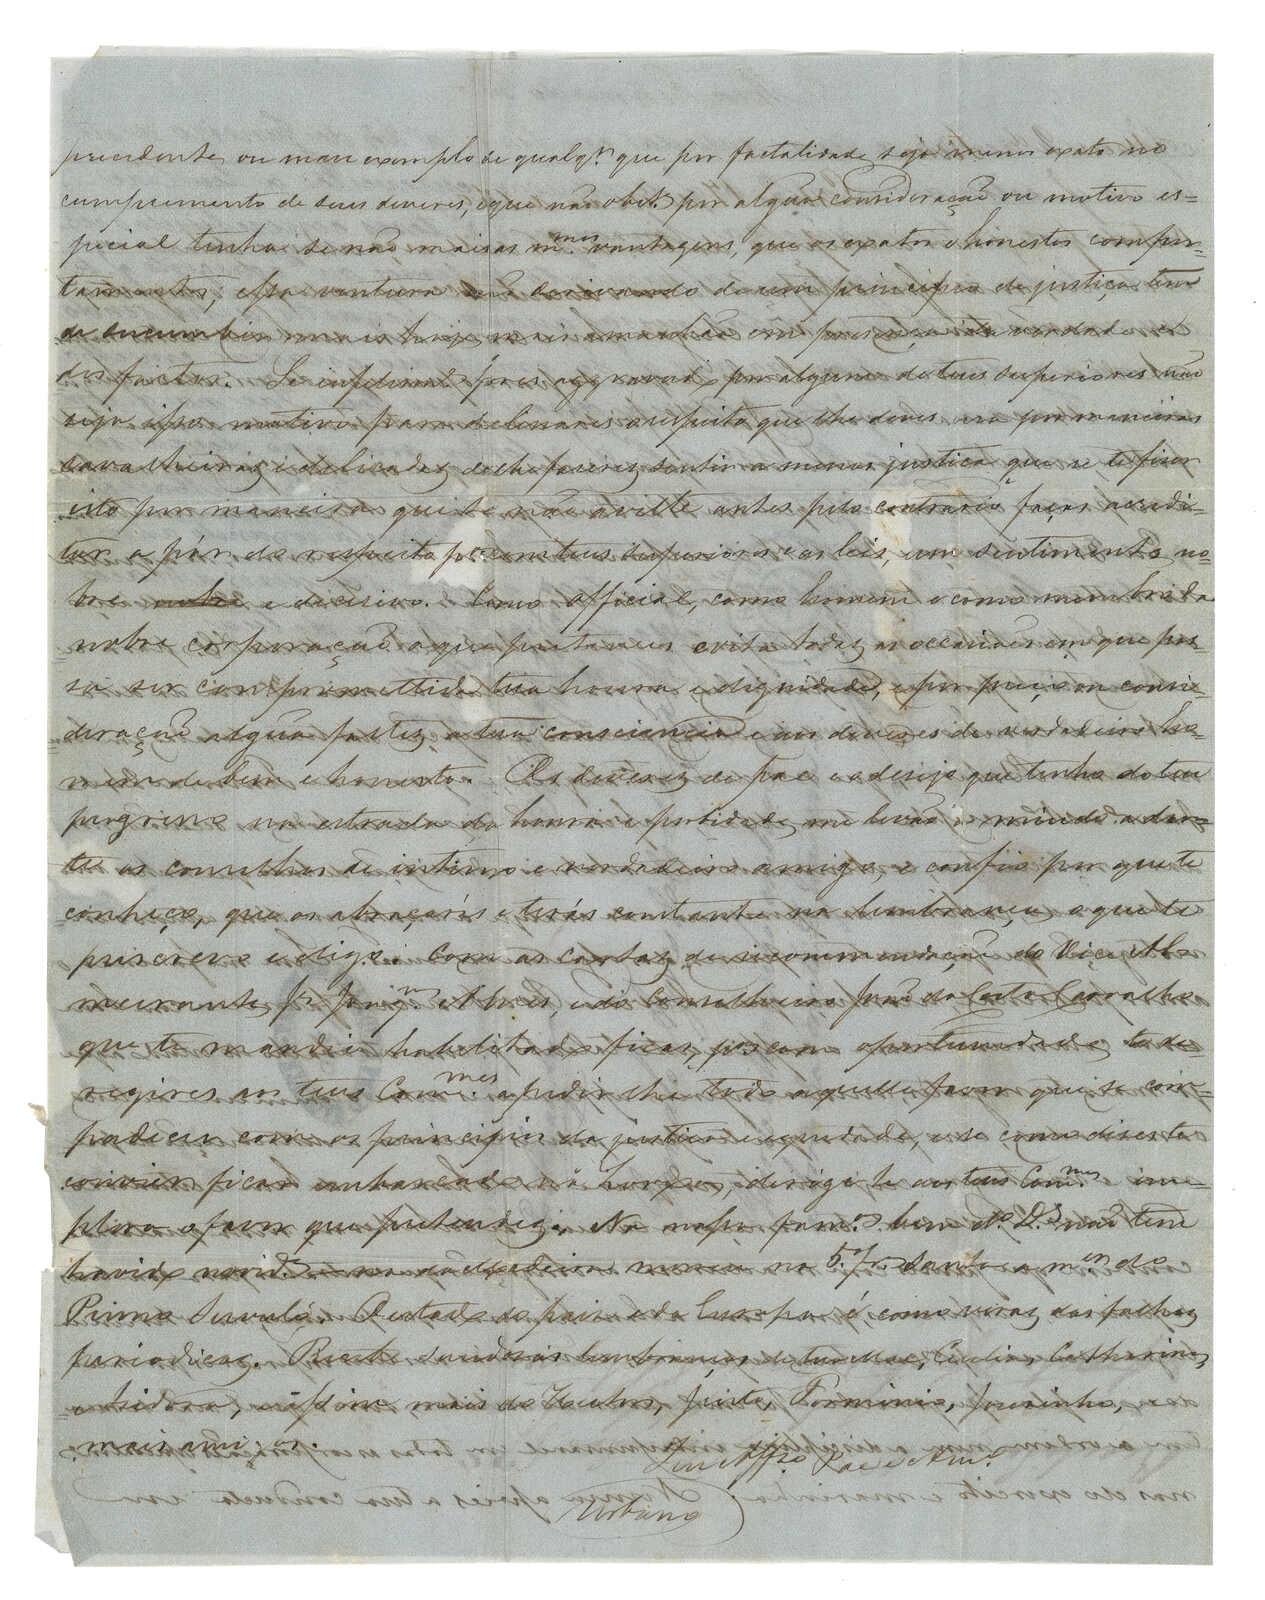 precedente, ou mau exemplo de qualqr. que por factalidade seja menos exato no
cumprimento de seus deveres, e que não obste. por algũa consideração ou motivo es=
pecial tenha se não mais as mmas. vantagens, que os exatos e honestos compor=
tamentos; essa ventura não derivando de um principio de justiça tem
de sucumbir mais hoje, mais amanhãa em presença da verdade e
dos factos. Se infeliz fores aggravado por algum de teus superiores não
seja isso motivo para deslisares o respeito que lhe deves, ora por maneiras
cavalheiras e delicadas deche fazerez sentir a menos justiça que se te fizer
isto por maneira que te não avilte antes pelo contrario faças acredi=
tar a pár do respeito pa. com teus superiores e as leis, um sentimento no=
bre e decisivo. Como official, como homem e como membro da
nobre corporação a que pertences evita todas as occasiões em que pos=
sa ser compromettida tua honra e dignidade, e por preço ou consi=
deração algũa faltez a tua consciencia e aos deveres de verdadeiro ho=
mem de bem e honesto. Os deveres de pae e o desejo que tenho do teu
progresso na estrada da honra e probidade me levão a miudo a dar=
te os conselhos de intimo e verdadeiro amigo, e confio por que te
conheço, que os abraçarás e terás constante na lembrança o que te
prescrevo e digo. Com as cartas de recommendação do Vice Al=
meirante Je. Joaqm. Alves, e do Conselheiro João da Costa Carvalho
que te mandei habilitado ficas, pos com opportunidade, te di=
regires aos teus Comes. a pedir lhe todo aquelle favor que se com=
padecer com os principios da justiça e equidade, e se como diseste
convier ficar embarcado na , dirige te aos teus Comes. e im=
plora o favor que pretendez. Na nossa fama. bem do. Ds. não tem
havido novide. morreu na 5a. fra. Santa a mer. do
Primo Servulo. O estado do paiz e da Europa é como veraz das folhas
periodicas. Recebe saudosas lembranças de tua Mae, Cecilia, Catharina,
e Isidora, e mais do , Firmino, Juninho,
mais ami; os.
Teu Affo. Pae e Amo.
Urbano